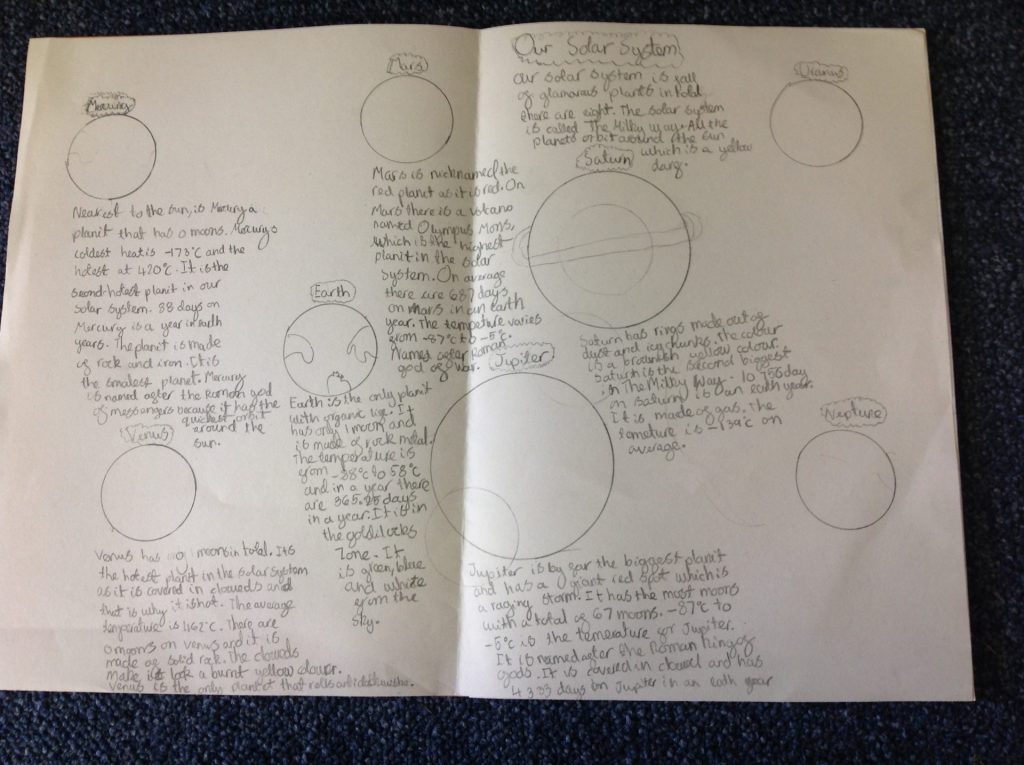 Our Solar System
Our solar system is full
of glamarous planits in total
there are eight. The solar system
is called The Milky Way. All the
planets orbit around the sun
which is a yellow
darg.
Mercury
Nearest to the sun, is Mercury a
planit that has 0 moons. Mercurys
coldest heat is -173°C and the
hotest at 420°C. It is the
second-hotest planit in our
Solar system. 88 days on
Mercury is a year in earth
years. The planit is made
of rock and iron. It is
the smalest planet. Mercury
is named after the Roman god
of messangers because it has the
quickest orbit
around the
sun.
Venus
Venus has moons in total. It is
the hotest planit in the solar system
as it is covered in clowds and
that is why it is hot. The average
temperature is 462°C. There are
0 moons on Venus and it is
made of solid rock. The clowds
make it look a burnt yellow
Venus is the only planet that rolls
Earth
Earth is the only planit
with organic life. It
has only 1 moon and
is made of rock metal.
The temperature is
from -88°C to 58°C
and in a year there
are 365.25 days
in a year. It is in
the goldilocks
Zone. It
is green, blue
and white
from the
sky.
Mars
Mars is nicknamed the
red planet as it is red. On
Mars there is a volcano
named Olympus Mons,
which is the highest
planit in the solar
system. On average
there are 687 days
on mars in an earth
year. The tempeture varies
from -87°C to -5°C.
Named after Roman
god of war.
Jupiter
Jupiter is by far the biggest planit
and has a giant red spot which is
a raging storm. It has the most moons
with a total of 67 moons. -87°C to
-5°C is the temerature for Jupiter.
It is named after the Roman King of
gods. It is covered in clowd and has
4333 days on Jupiter in an eath year
Saturn
Saturn has rings made out of
dust and ice chunks. The colour
is a brownish yellow colour.
Saturn is the second biggest
in The Milky Way. 10 756 day
on Saturn is an eath year.
It is made of gas. The
temature is -139°C on
average.
Uranus
Neptune